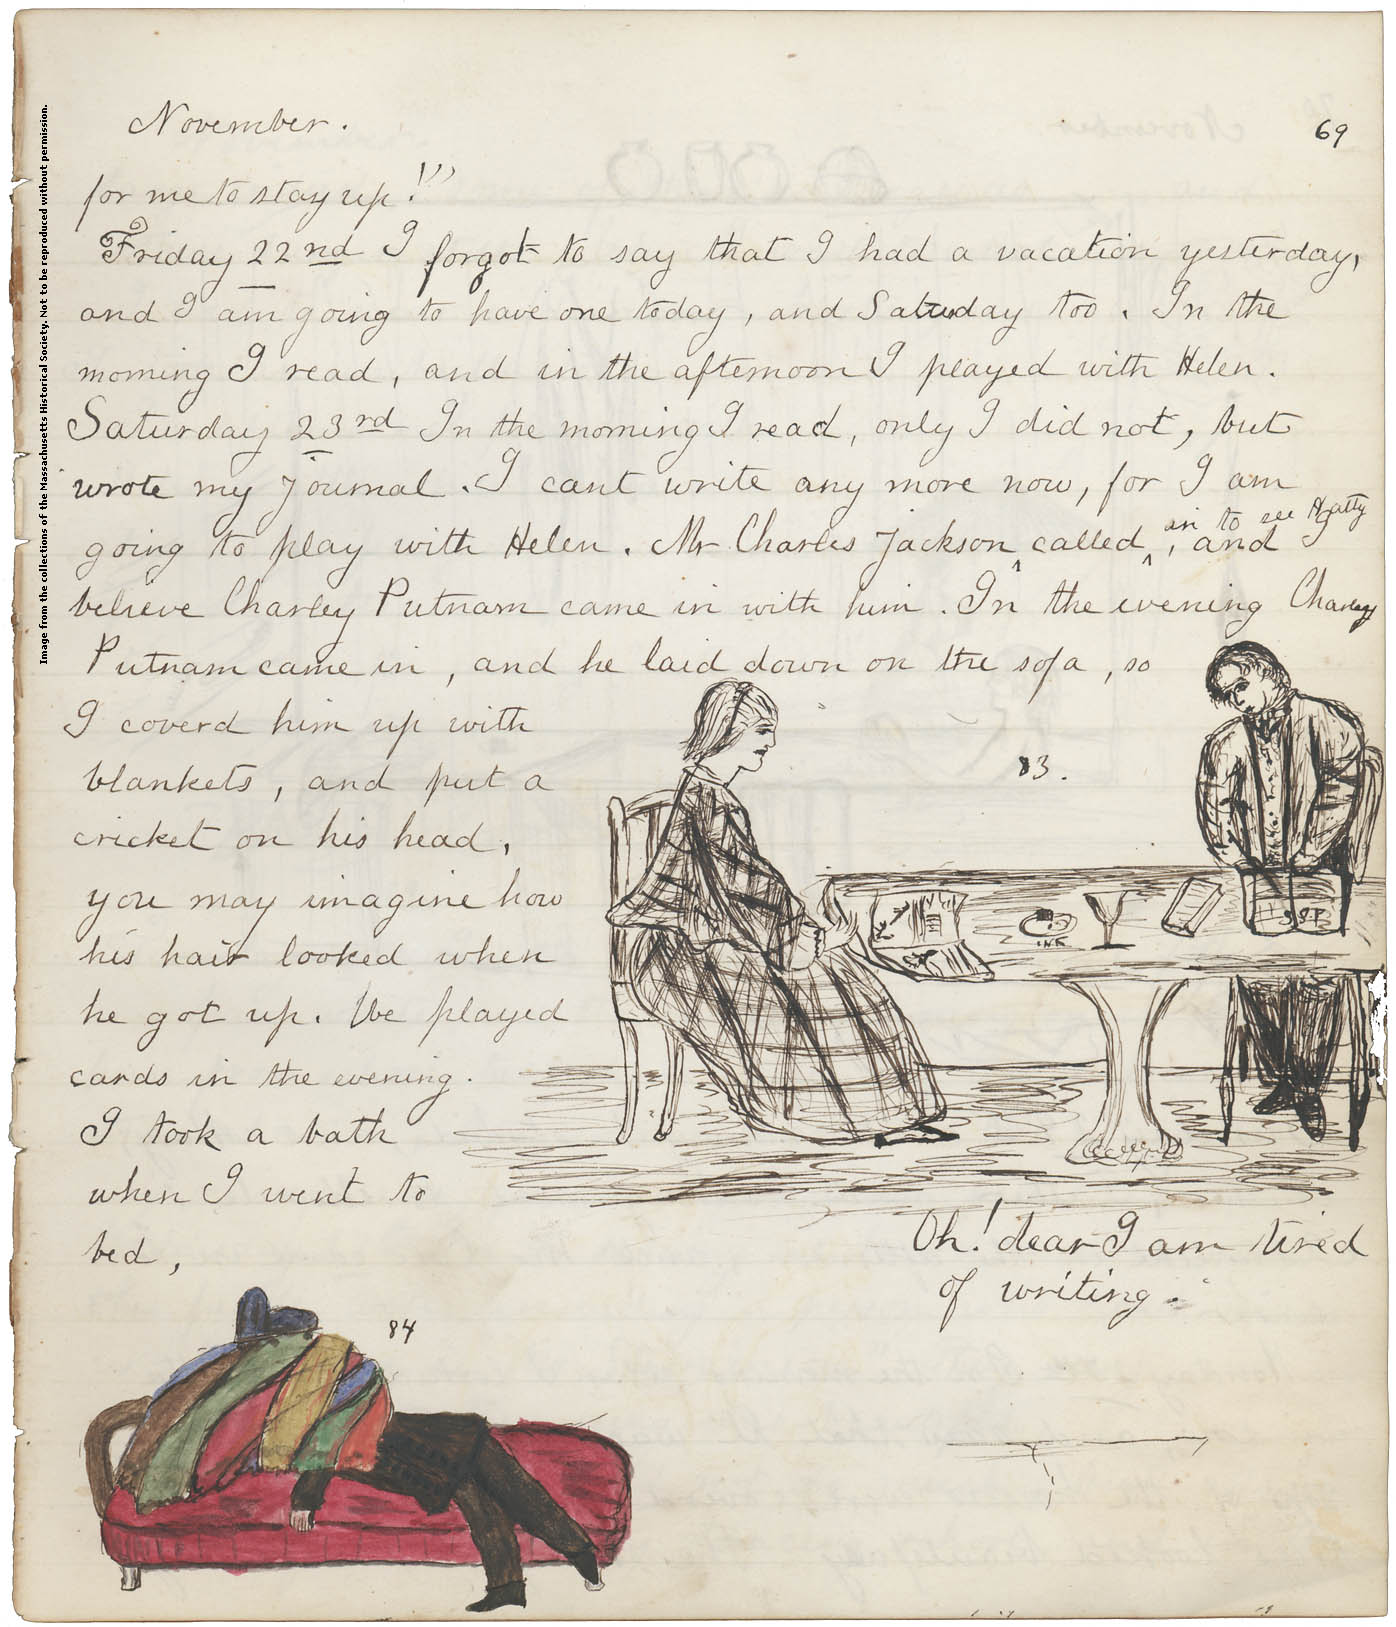 Image from the collections of the Massachusetts Historical Society. Not to be reproduced without permission.
November.
69
for me to stay up!"
Friday 22nd I forgot to say that I had a vacation yesterday,
and I am going to have one today, and Saturday too. In the
morning I read, and in the afternoon I played with Helen.
Saturday 23rd In the morning I read, only I did not, but
wrote my journal. I cant write any more now, for I am
going to play with Helen. Mr Charles Jackson called in to see Hatty, and
believe Charley Putnam came in with him. In the evening Charley
Putnam came in, and he laid down on the sofa, so
I coverd him up with
blankets, and put a
cricket on his head,
you may imagine how
his hair looked when
he got up. We played
cards in the evening.
I took a bath
when I went to
bed,
83.
INK
Oh! dear I am tired
of writing.
84